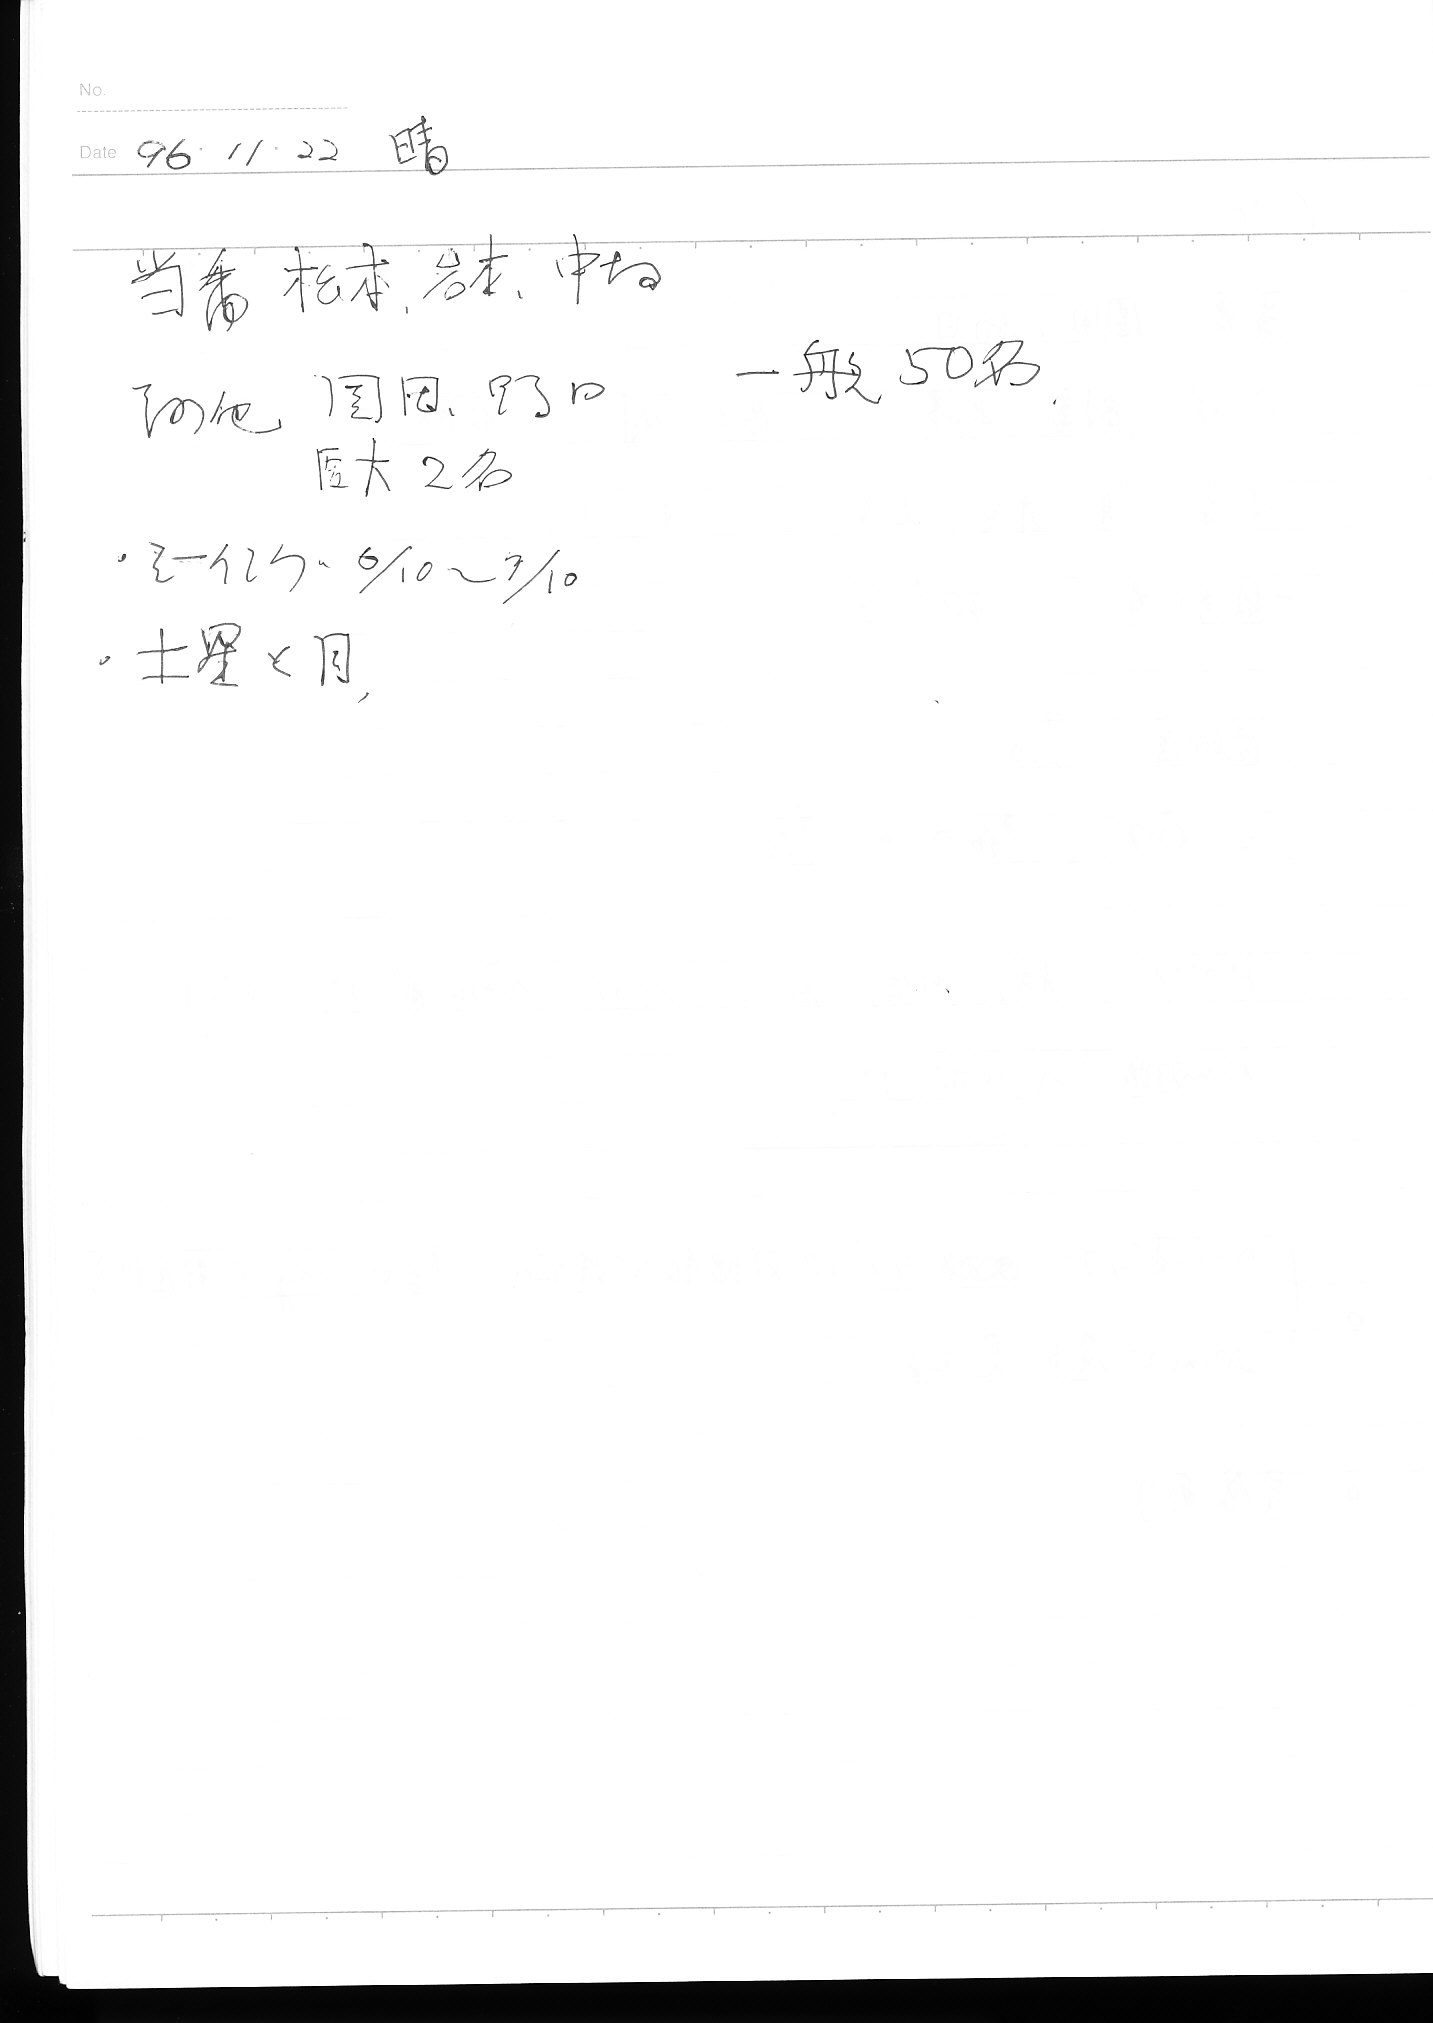 No.
Date 96・11・22 晴
当番 松本、岩本、中むら
その他 国田、野口 一般 50名.
医大 2名
・ミーティング 6/10〜7/10
・土星と月,